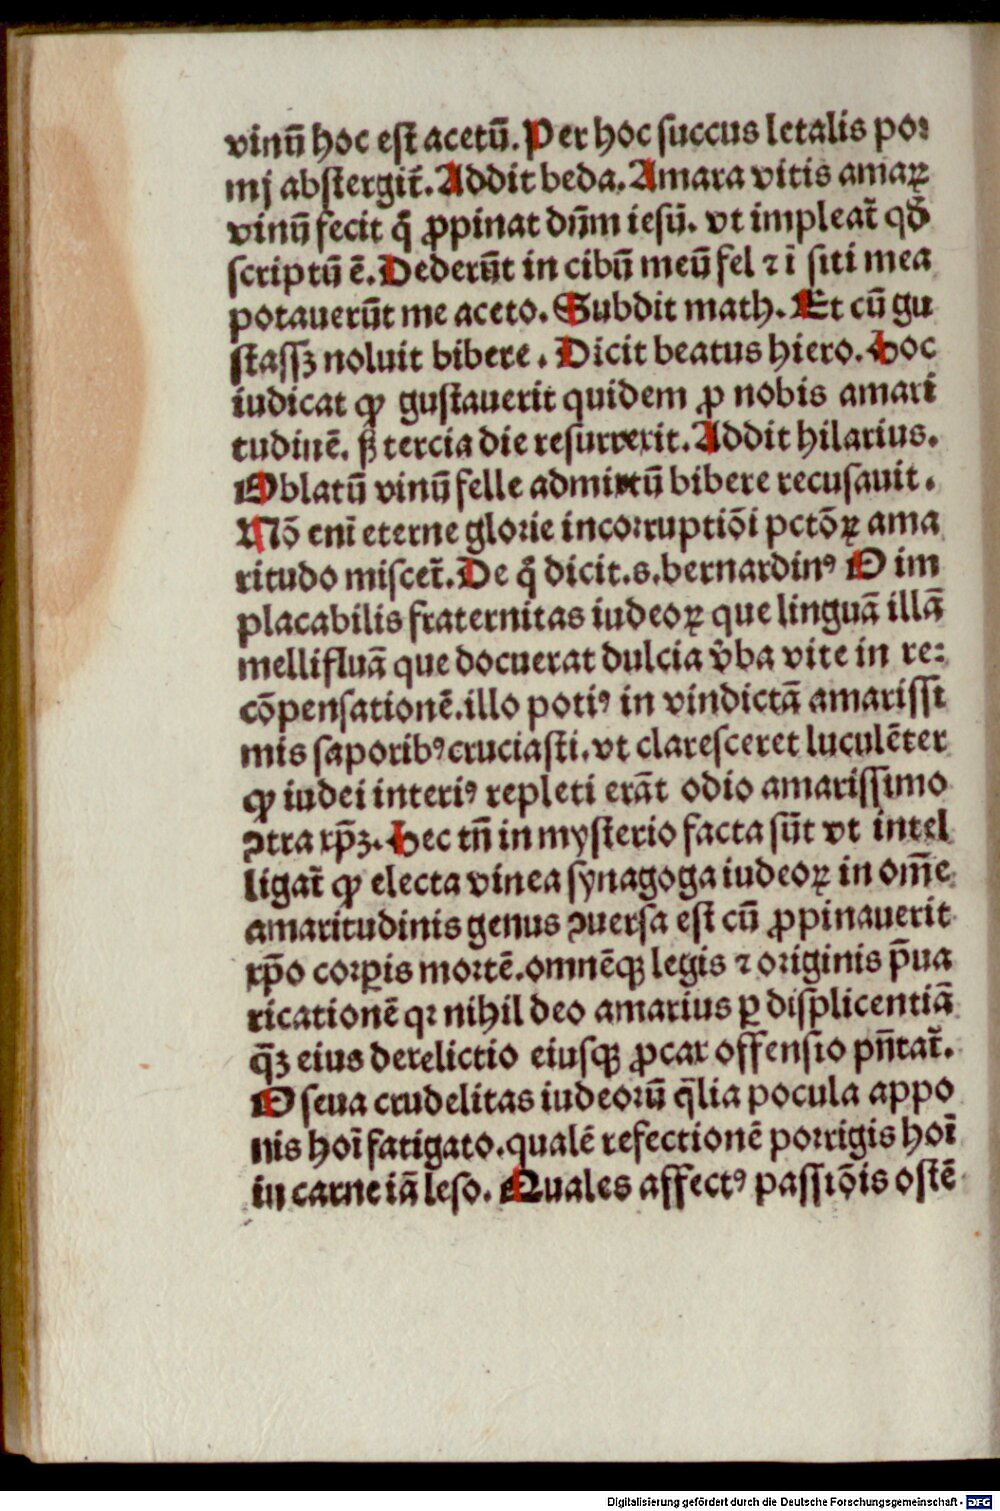 vinū hoc est acetū. Per hoc succus letalis po⸗
mj abstergit̄. Addit beda. Amara vitis amaꝝ
vinū fecit q̄ ꝓpinat dn̄m iesū. vt impleat̄ qđ
scriptū ē. Dederūt in cibū meū fel ⁊ ī siti mea
potauerūt me aceto. Subdit math. Et cū gu
stassꝫ noluit bibere. Dicit beatus hiero. Hoc
iudicat ꝙ gustauerit quidem ꝓ nobis amari
tudinē. ß tercia die resurrexit. Addit hilarius.
Oblatū vinū felle admixtū bibere recusauit.
Nō enī eterne glorie incorruptiōi pctōꝝ ama
ritudo miscet̄. De q̄ dicit. s. bernardinꝰ O im
placabilis fraternitas iudeoꝝ que linguā illā
mellifluā que docuerat dulcia v̄ba vite in re⸗
cōpensationē. illo potiꝰ in vindictā amarissi
mis saporibꝰ cruciasti. vt claresceret luculēter
ꝙ iudei interiꝰ repleti erāt odio amarissimo
ꝯtra xp̄ꝫ. Hec tn̄ in mysterio facta sūt vt intel
ligat̄ ꝙ electa vinea synagoga iudeoꝝ in om̄e
amaritudinis genus ꝯuersa est cū ꝓpinauerit
xp̄o corꝑis mortē. omnēqꝫ legis ⁊ originis p̄ua
ricationē qꝛ nihil deo amarius ꝑ displicentiā
q̄ꝫ eius derelictio eiusqꝫ ꝓcax offensio pn̄tat̄.
O seua crudelitas iudeorū q̄lia pocula appo
nis hoī fatigato. qualē refectionē porrigis hoī
in carne iā leso. Quales affectꝰ passiōis ostē
Digitalisierung gefördert durch die Deutsche Forschungsgemeinschaft - DFG